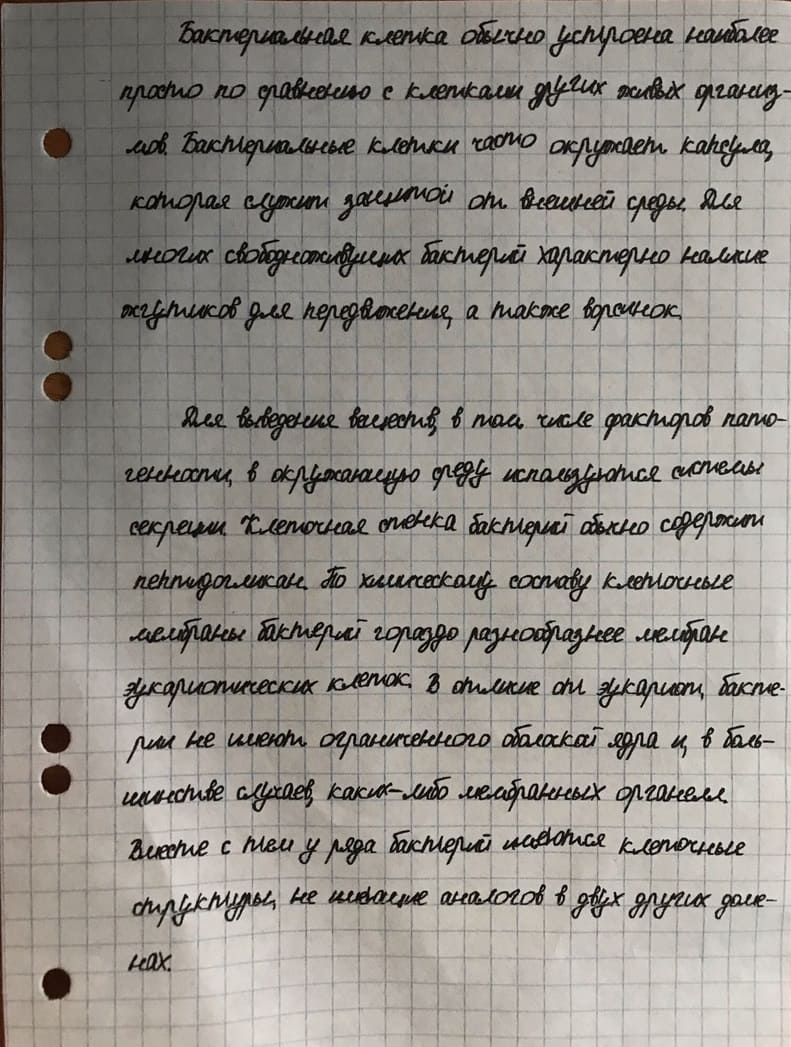 Бактериальная клетка обычно устроена наиболее
просто по сравнению с клетками других живых организ-
мов. Бактериальные клетки часто окружает капсула,
которая служит защитой от внешней среды. Для
многих свободноживущих бактерий характерно наличие
жгутиков для передвижения, а также ворсинок.
Для выведения веществ, в том числе факторов пато-
генности, в окружающую среду используются системы
секреции. Клеточная стенка бактерий обычно содержит
пептидогликан. По химическому составу клеточные
мембраны бактерий гораздо разнообразнее мембран
эукариотических клеток. В отличие от эукариот, бакте-
рии не имеют ограниченного оболокой ядра и, в боль-
шинстве случаев, каких-либо мембранных органелл.
Вместе с тем у ряда бактерий имеются клеточные
структуры, не имеющие аналогов в двух других доме-
нах.